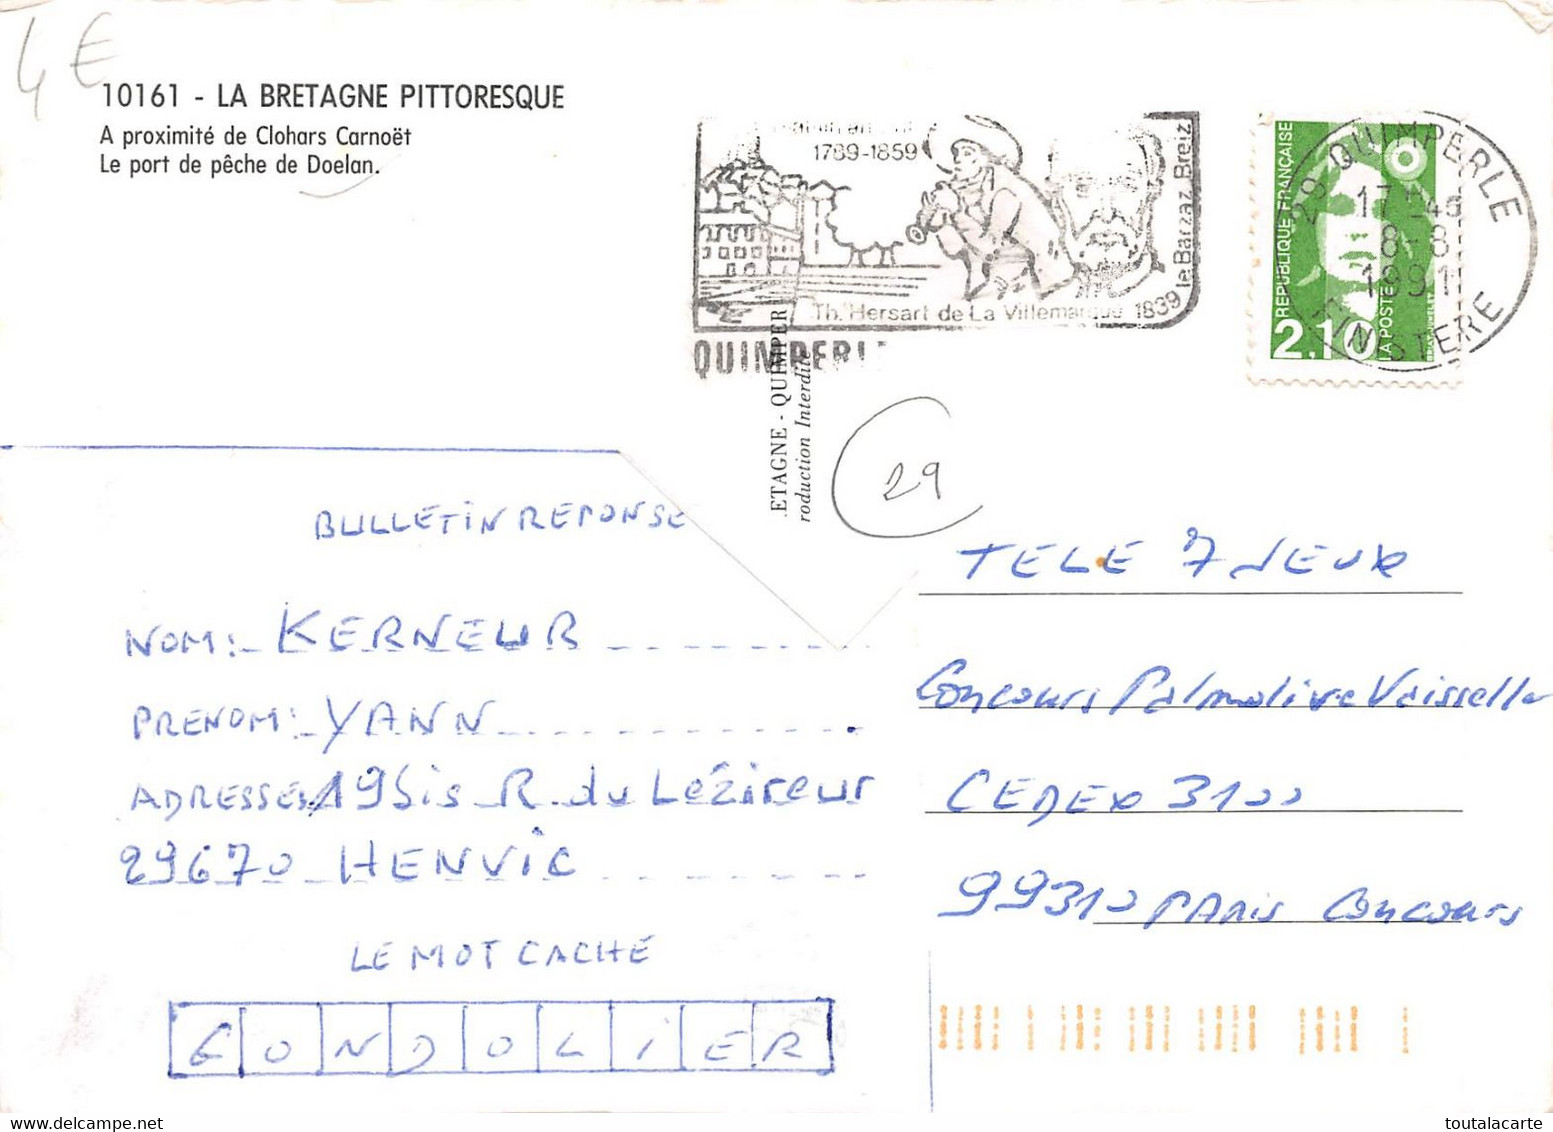 4 €
10161 - LA BRETAGNE PITTORESQUE
A proximité de Clohars Carnoët
Le port de pêche de Doelan.
1789-1859
Th. Hersart de La Villemarque 1839 le Barzaz Breiz
QUIMPERLE
RÉPUBLIQUE FRANÇAISE
2,10
LA POSTE
29 QUIMPERLE
17 H 45
8-8
1991
FINISTERE
ETAGNE - QUIMPER
roduction Interdite
29
BULLETIN REPONSE
NOM: KERNEUR
PRENOM: YANN
ADRESSE: 19 bis R. du Lézireur
29670 HENVIC
LE MOT CACHE
GONDOLIER
TELE 7 JEUX
Concours Palmolive Vaisselle
CEDEX 3100
99310 PARIS Concours
toutalacarte